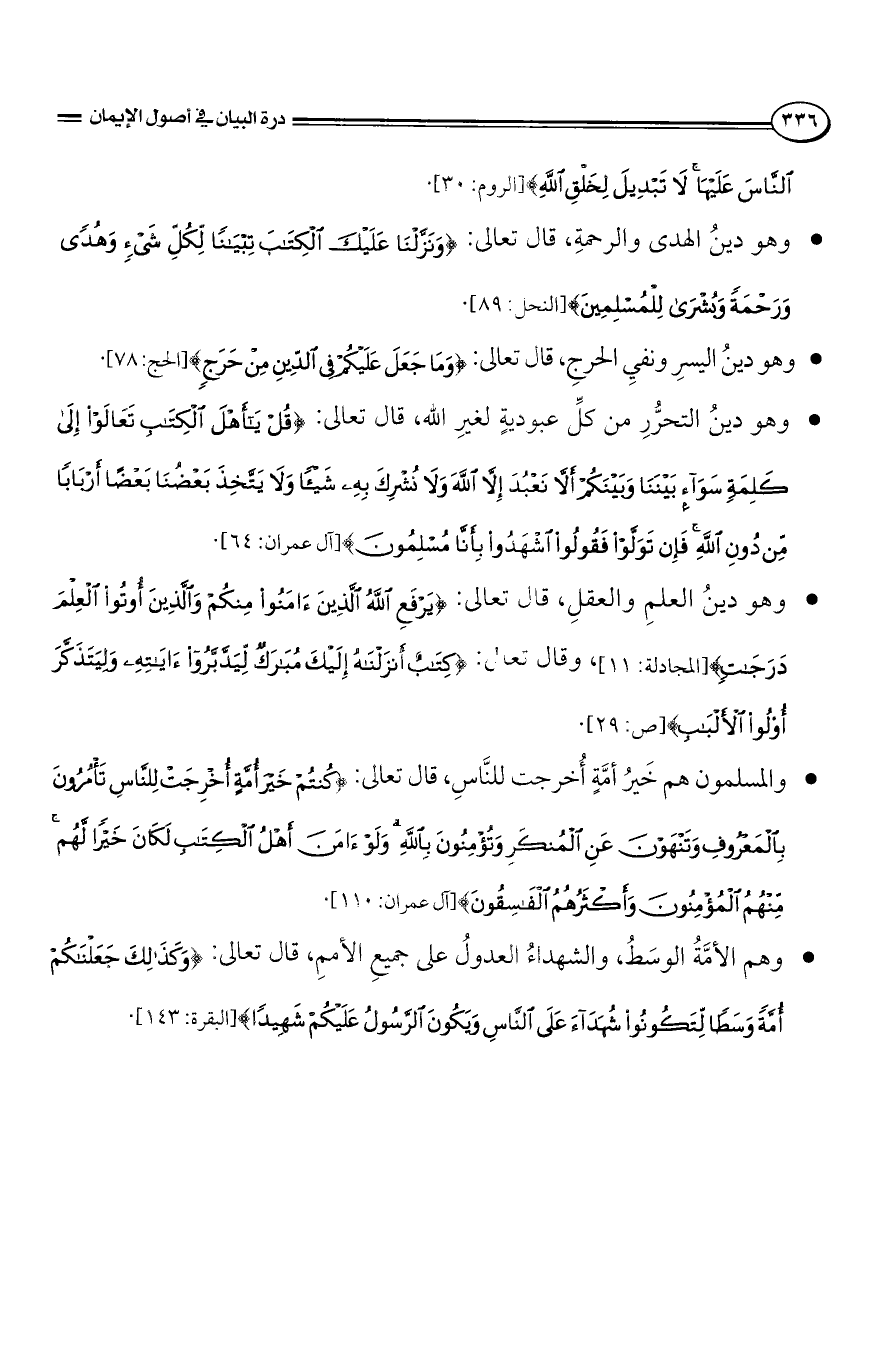 ٣٣٦ درة البيان في أصول الإيمان
ٱلنَّاسَ عَلَيۡهَاۚ لَا تَبۡدِيلَ لِخَلۡقِ ٱللَّهِ﴾[الروم: ٣٠].
• وهو دينُ الهدى والرحمةِ، قال تعالى: ﴿وَنَزَّلۡنَا عَلَيۡكَ ٱلۡكِتَٰبَ تِبۡيَٰنٗا لِّكُلِّ شَيۡءٖ وَهُدٗى
وَرَحۡمَةٗ وَبُشۡرَىٰ لِلۡمُسۡلِمِينَ﴾[النحل: ٨٩].
• وهو دينُ اليسرِ ونفيِ الحرجِ، قال تعالى: ﴿وَمَا جَعَلَ عَلَيۡكُمۡ فِي ٱلدِّينِ مِنۡ حَرَجٖ﴾[الحج: ٧٨].
• وهو دينُ التحرُّرِ من كلِّ عبوديةٍ لغيرِ الله، قال تعالى: ﴿قُلۡ يَٰٓأَهۡلَ ٱلۡكِتَٰبِ تَعَالَوۡاْ إِلَىٰ
كَلِمَةٖ سَوَآءِۭ بَيۡنَنَا وَبَيۡنَكُمۡ أَلَّا نَعۡبُدَ إِلَّا ٱللَّهَ وَلَا نُشۡرِكَ بِهِۦ شَيۡـٔٗا وَلَا يَتَّخِذَ بَعۡضُنَا بَعۡضًا أَرۡبَابٗا
مِّن دُونِ ٱللَّهِۚ فَإِن تَوَلَّوۡاْ فَقُولُواْ ٱشۡهَدُواْ بِأَنَّا مُسۡلِمُونَ﴾[آل عمران: ٦٤].
• وهو دينُ العلمِ والعقلِ، قال تعالى: ﴿يَرۡفَعِ ٱللَّهُ ٱلَّذِينَ ءَامَنُواْ مِنكُمۡ وَٱلَّذِينَ أُوتُواْ ٱلۡعِلۡمَ
دَرَجَٰتٖ﴾[المجادلة: ١١]، وقال تعالى: ﴿كِتَٰبٌ أَنزَلۡنَٰهُ إِلَيۡكَ مُبَٰرَكٞ لِّيَدَّبَّرُوٓاْ ءَايَٰتِهِۦ وَلِيَتَذَكَّرَ
أُوْلُواْ ٱلۡأَلۡبَٰبِ﴾[ص: ٢٩].
• والمسلمون هم خَيرُ أمَّةٍ أُخرجت للنَّاسِ، قال تعالى: ﴿كُنتُمۡ خَيۡرَ أُمَّةٍ أُخۡرِجَتۡ لِلنَّاسِ تَأۡمُرُونَ
بِٱلۡمَعۡرُوفِ وَتَنۡهَوۡنَ عَنِ ٱلۡمُنكَرِ وَتُؤۡمِنُونَ بِٱللَّهِۗ وَلَوۡ ءَامَنَ أَهۡلُ ٱلۡكِتَٰبِ لَكَانَ خَيۡرٗا لَّهُمۚ
مِّنۡهُمُ ٱلۡمُؤۡمِنُونَ وَأَكۡثَرُهُمُ ٱلۡفَٰسِقُونَ﴾[آل عمران: ١١٠].
• وهم الأمَّةُ الوسَطُ، والشهداءُ العدولُ على جميعِ الأممِ، قال تعالى: ﴿وَكَذَٰلِكَ جَعَلۡنَٰكُمۡ
أُمَّةٗ وَسَطٗا لِّتَكُونُواْ شُهَدَآءَ عَلَى ٱلنَّاسِ وَيَكُونَ ٱلرَّسُولُ عَلَيۡكُمۡ شَهِيدٗا﴾[البقرة: ١٤٣].